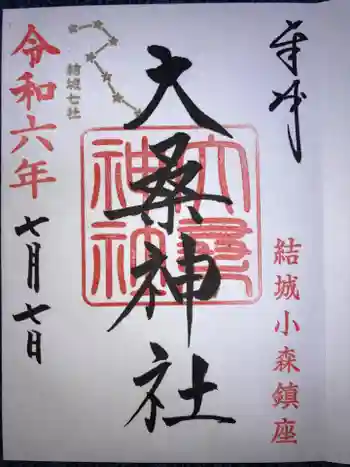 奉拝
結城小森鎮座
大桑神社
大桑神社
結城七社
令和六年
七月七日